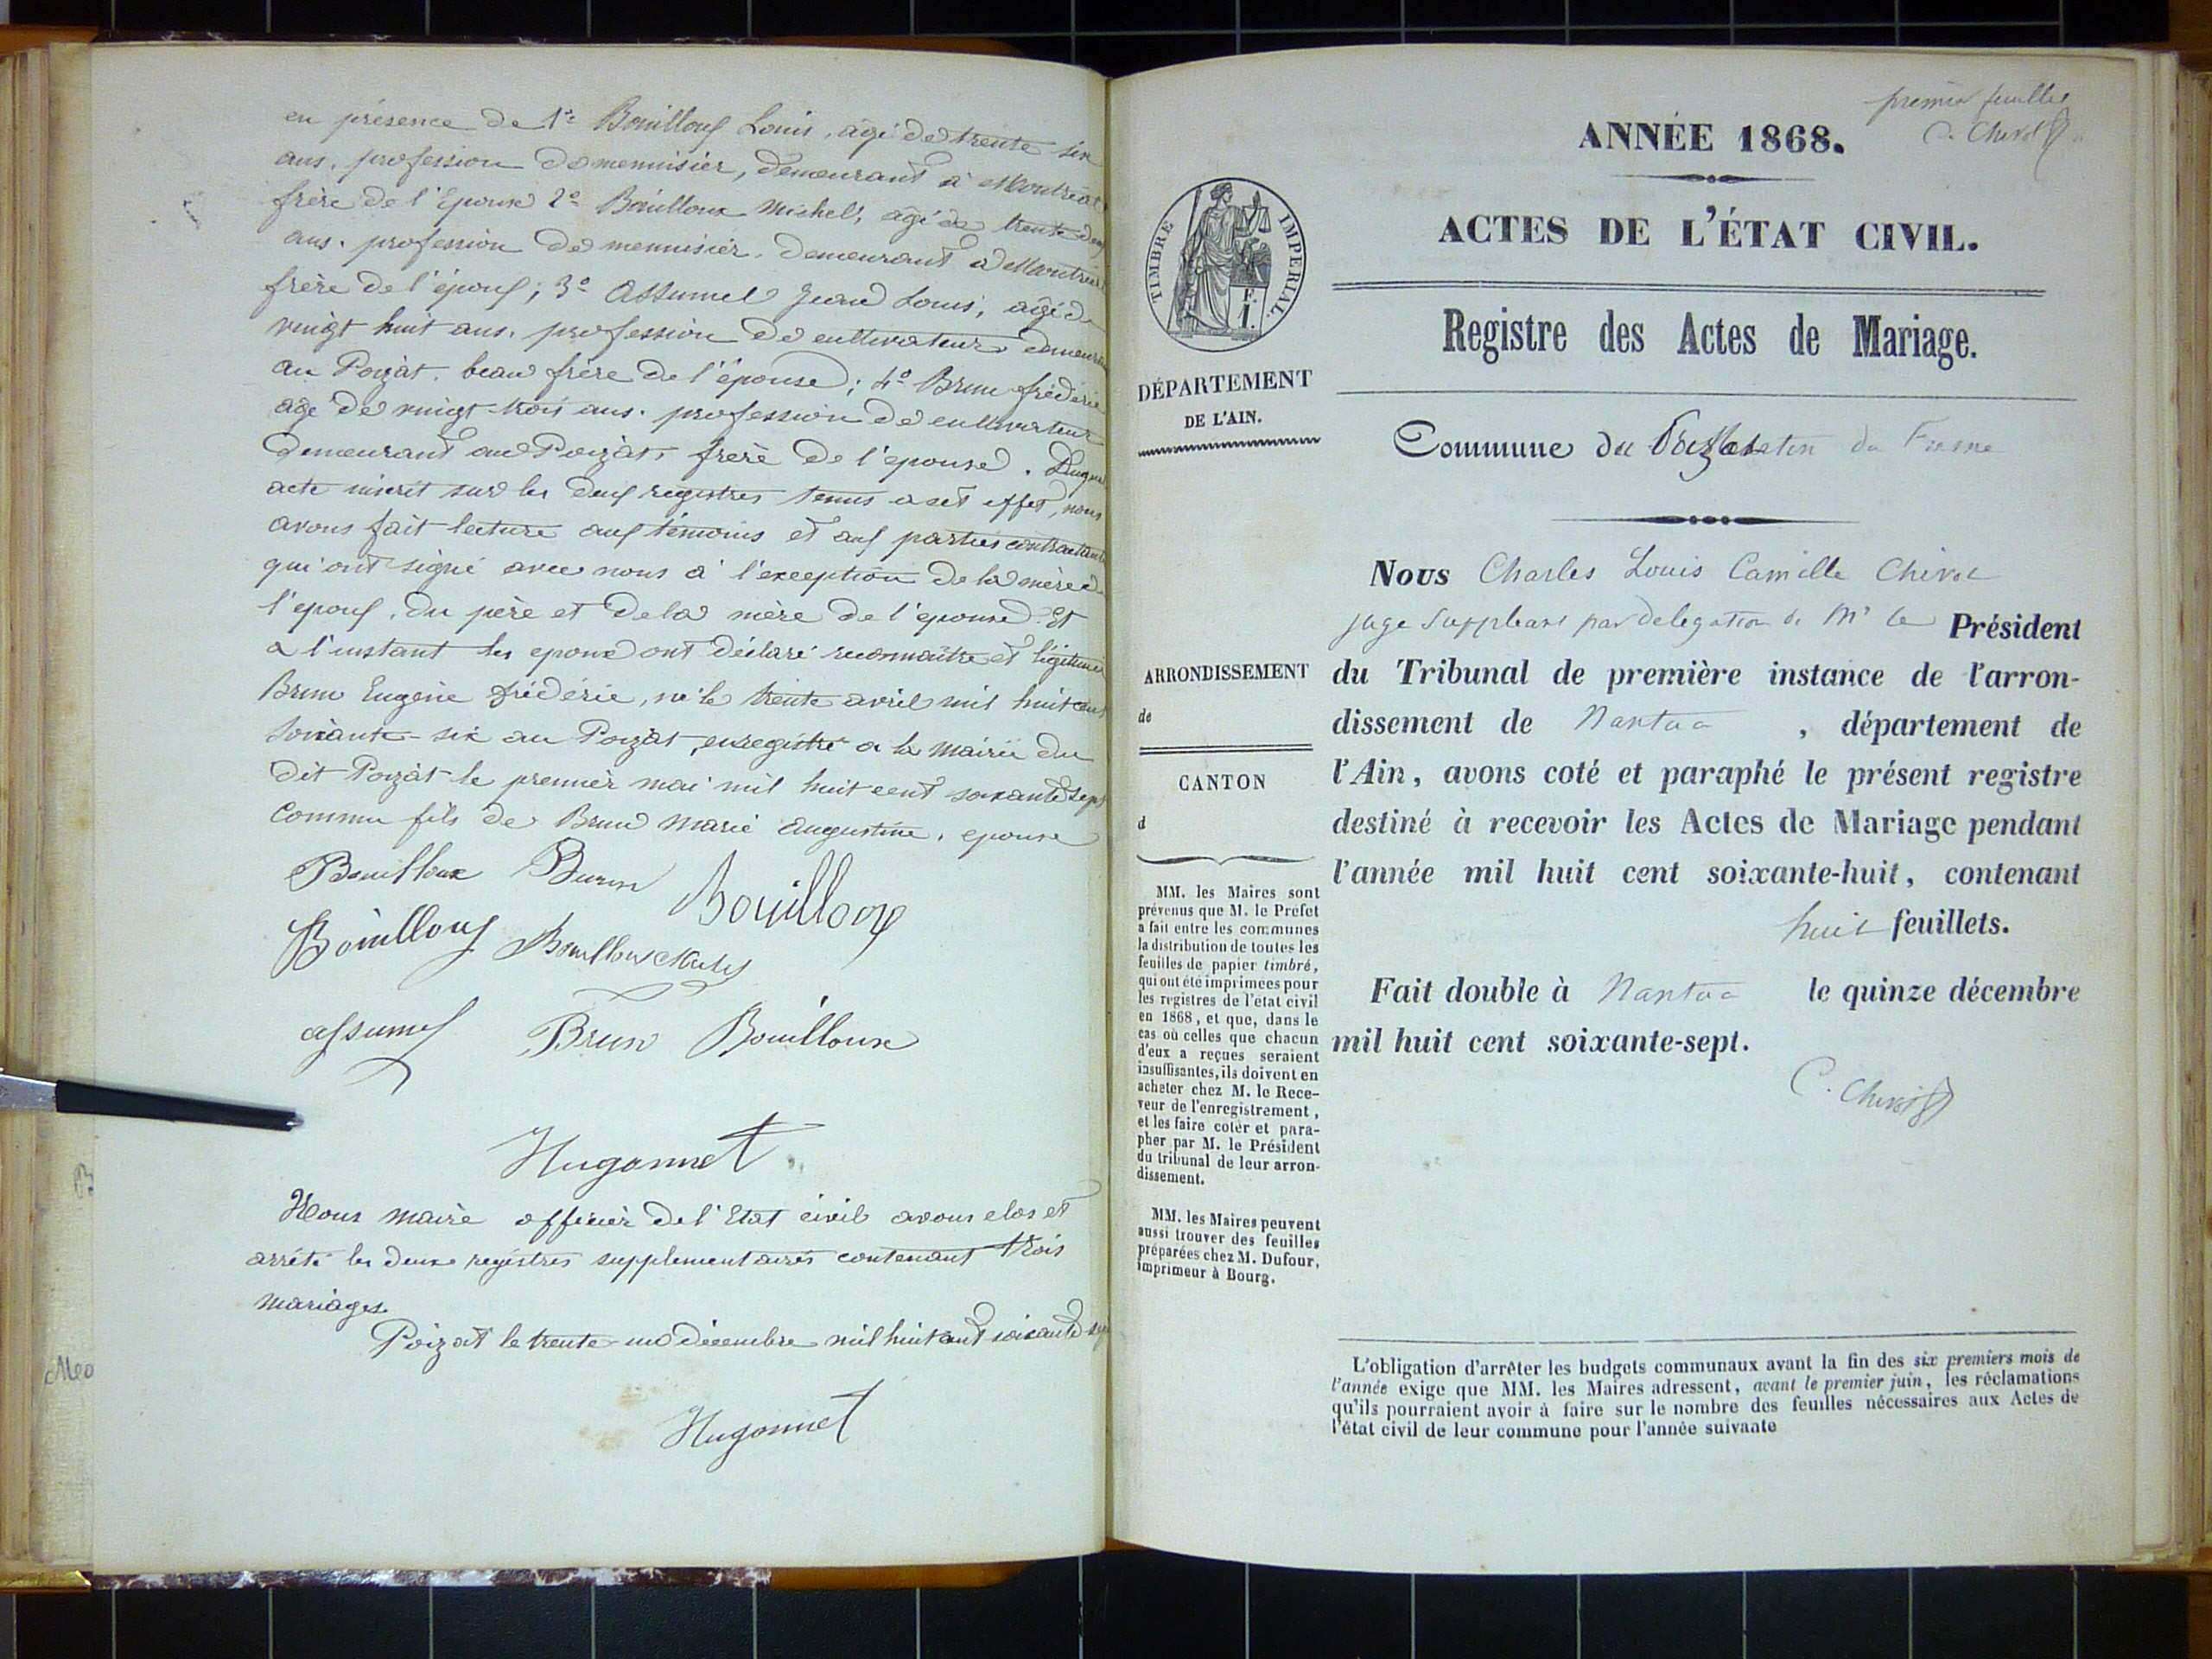 en présence de 1° Bouilloux Louis, agé de trente six
ans, profession de mennisier, demeurant à Montréal
frère de l'Epoux 2° Bouilloux Michel, agé de trente deux
ans. profession de mennisier. demeurant a Montréal
frère de l'époux; 3° Assumel Jean Louis, agé de
vingt huit ans. profession de cultivateur demeurant
au Poizat. beau frère de l'épouse; 4° Brun frédéric
age de vingt-trois ans. profession de cultivateur
demeurant au Poizat, frère de l'epouse. Duquel
acte inscrit sur les deux registres tenus a cet effet, nous
avons fait lecture aux témoins et aux parties contractantes
qui ont signé avec nous à l'exception de la mère de
l'epoux, du père et de la mère de l'epouse. Et
a l'instant les epoux ont déclaré reconnaître et légitimer
Brun Eugène frédéric, né le trente avril mil huit cent
soixante-six au Poizat, enregistré a la mairie du
dit Poizat le premier mai mil huit cent soixante sept
comme fils de Brun Marie Augustine, epouse
Bouilloux Burin Bouilloux
Bouilloux Bouilloux
assumel Brun Bouilloux
Hugonnet
Nous maire officier de l'Etat civil avons clos et
arrêté les deux registres supplementaires contenant trois
mariages.
Poizat le trente-un décembre mil huit cent soixante sept
Hugonnet
premier feuillet
C. Chivot
ANNÉE 1868.
ACTES DE L'ÉTAT CIVIL.
Registre des Actes de Mariage.
TIMBRE IMPERIAL
F.
1.
DÉPARTEMENT
DE L'AIN.
Commune du Poizat
ARRONDISSEMENT
de
CANTON
d
MM. les Maires sont
prévenus que M. le Préfet
a fait entre les communes
la distribution de toutes les
feuilles de papier timbré,
qui ont été imprimées pour
les registres de l'état civil
en 1868, et que, dans le
cas où celles que chacun
d'eux a reçues seraient
insuffisantes, ils doivent en
acheter chez M. le Rece-
veur de l'enregistrement,
et les faire coter et para-
pher par M. le Président
du tribunal de leur arron-
dissement.
MM. les Maires peuvent
aussi trouver des feuilles
préparées chez M. Dufour,
imprimeur à Bourg.
Nous Charles Louis Camille Chivot
juge suppleant par delegation de Mr le Président
du Tribunal de première instance de l'arron-
dissement de Nantua , département de
l'Ain, avons coté et paraphé le présent registre
destiné à recevoir les Actes de Mariage pendant
l'année mil huit cent soixante-huit, contenant
huit feuillets.
Fait double à Nantua le quinze décembre
mil huit cent soixante-sept.
C. Chivot
L'obligation d'arrêter les budgets communaux avant la fin des six premiers mois de
l'année exige que MM. les Maires adressent, avant le premier juin, les réclamations
qu'ils pourraient avoir à faire sur le nombre des feuilles nécessaires aux Actes de
l'état civil de leur commune pour l'année suivante